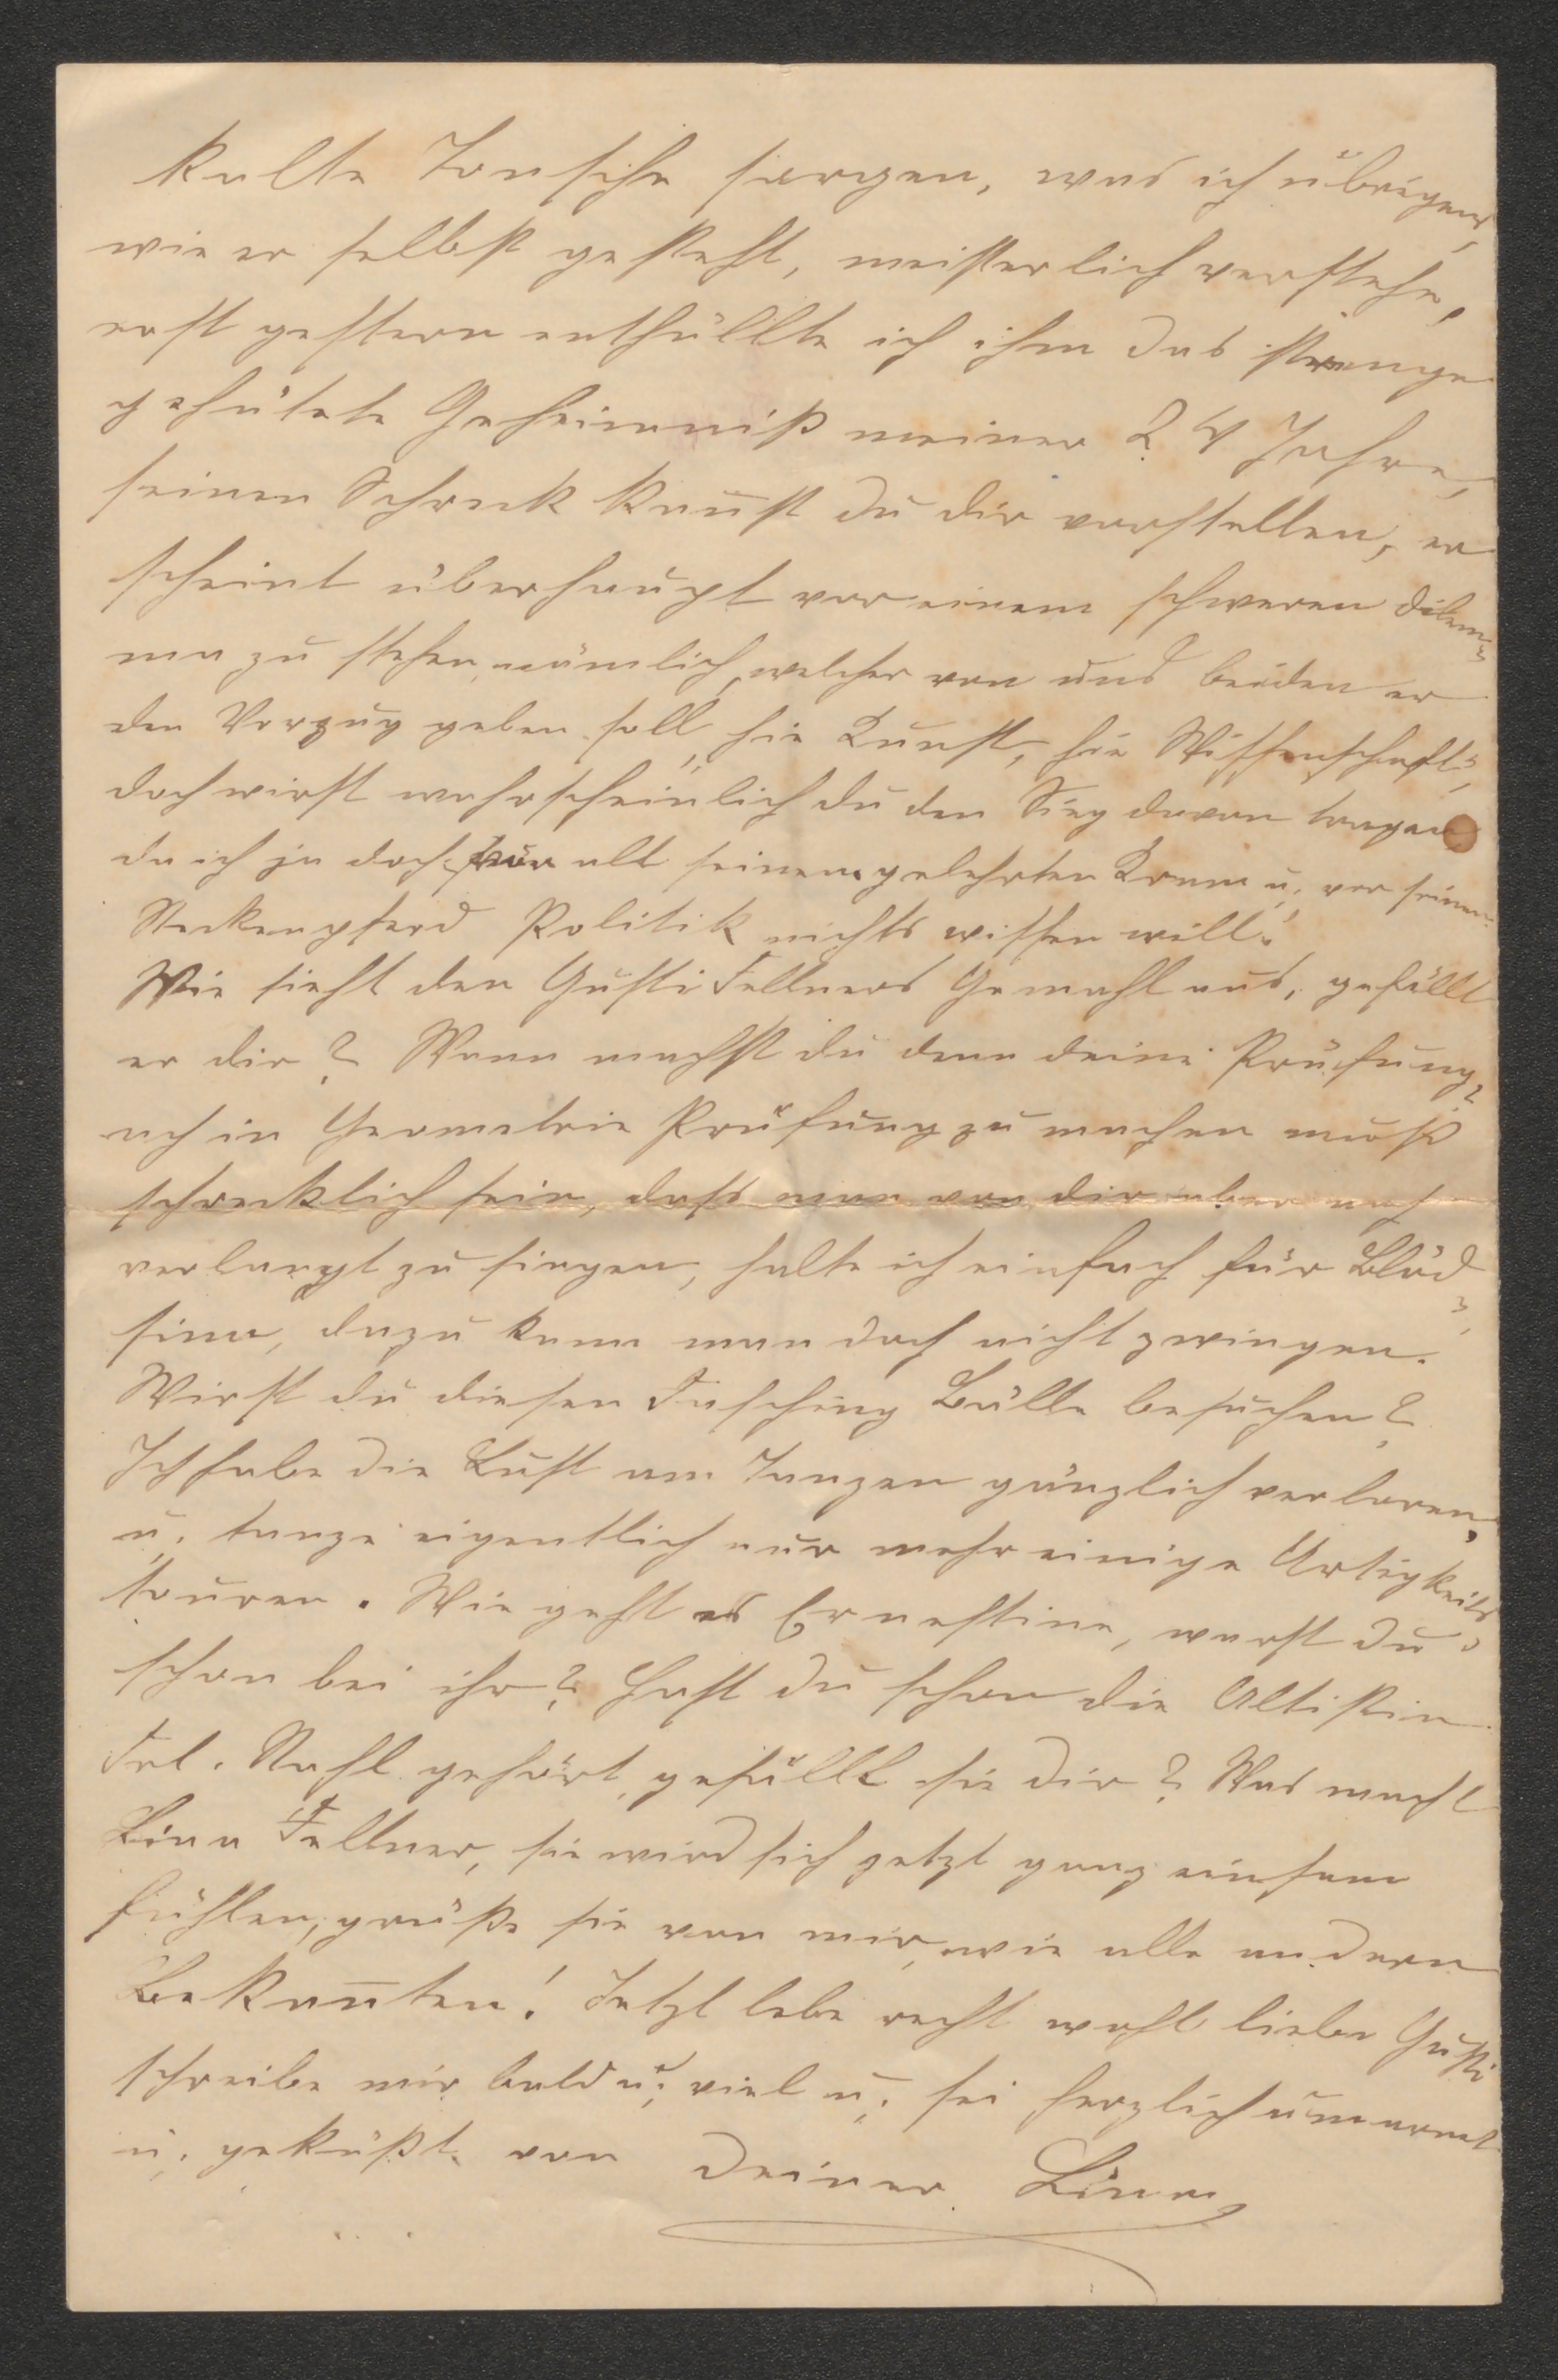 kalte Dousche sorgen, was ich übrigens,
wie er selbst gesteht, meisterlich verstehe,
erst gestern enthüllte ich ihm das strenge
gehütete Geheimniß meiner 24 Jahre,
seinen Schreck kan̄st du dir vorstellen, er
scheint überhaupt vor einem schweren Dilem=
ma zu stehen, nämlich, welcher von uns beiden er
den Vorzug geben soll, hie Kunst, hie Wissenschaft,
doch wirst wahrscheinlich du den Sieg davon tragen
da ich ja doch für all seinen gelehrten Kram u. vor seinem
Steckenpferd Politik nichts wissen will.
Wie sieht den Gusti Fellners Gemahl aus, gefällt
er dir? Wann machst du denn deine Prüfung,
ach in Geometrie Prüfung zu machen muß
schrecklich sein, dass man von dir aber noch
verlangt zu singen, halte ich einfach für Blöd=
sinn, dazu kann man doch nicht zwingen.
Wirst du diesen Fasching Bälle besuchen?
Ich habe die Lust am Tanzen gänzlich verloren,
u. tanze eigentlich nur mehr einige Artigkeits=
touren. Wie geht es Ernestine, warst du
schon bei ihr? Hast du schon die Altistin
Frl. Stahl gehört, gefällt sie dir? Was macht
Lina Fellner, sie wird sich jetzt ganz einsam
fühlen, grüße sie von mir, wie alle andern
Bekan̄ten! Jetzt lebe recht wohl liebe Gusti
schreibe mir bald u. viel u. sei herzlich umarmt
u. geküßt von Deiner Lina